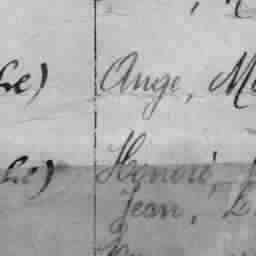 he) Ange, M
he) Honoré,
Jean, L